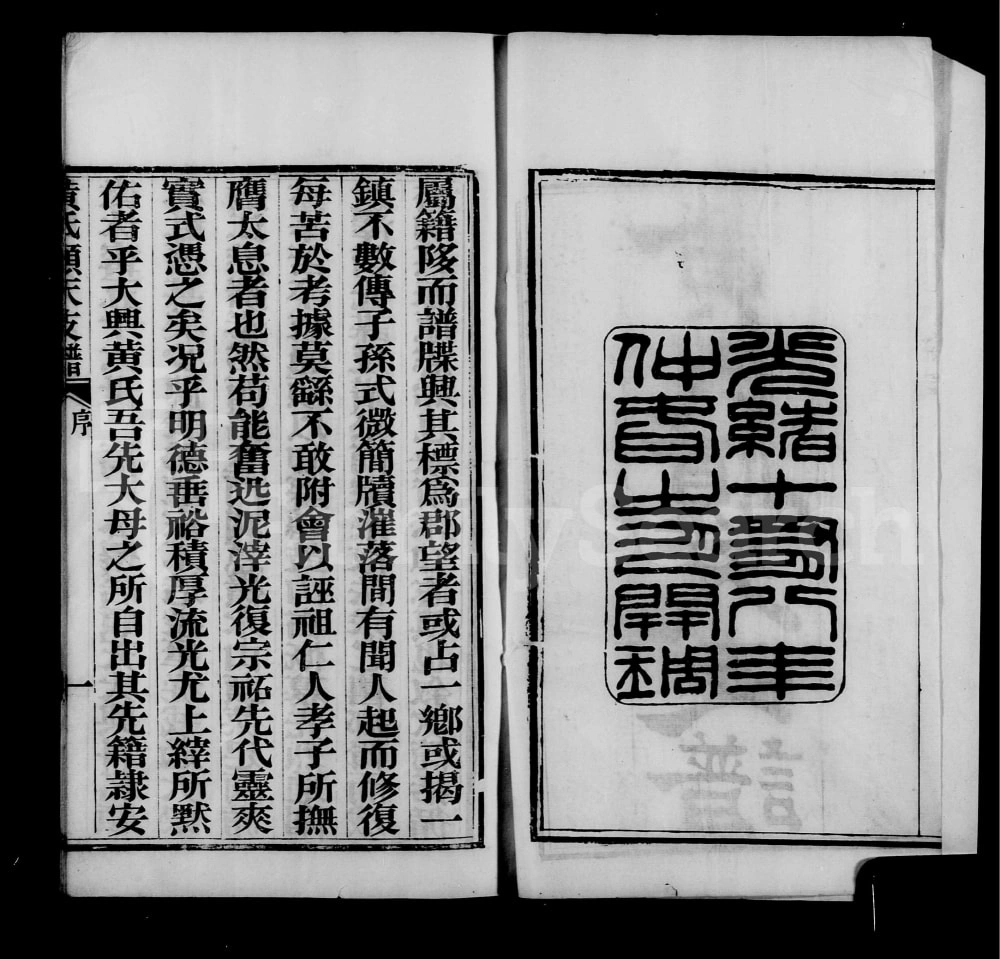 光緒十八年
仲春開琱
屬籍陊而譜牒興其標爲郡望者或占一鄉或揭一
鎮不數傳子孫式微簡牘漼落間有聞人起而修復
每苦於考據莫繇不敢附會以誣祖仁人孝子所撫
膺太息者也然苟能奮迅泥滓光復宗祏先代靈爽
實式憑之矣况乎明德垂裕積厚流光尤上縡所默
佑者乎大興黃氏吾先大母之所自出其先籍隸安
黃氏順天支譜 序 一
FamilySearch